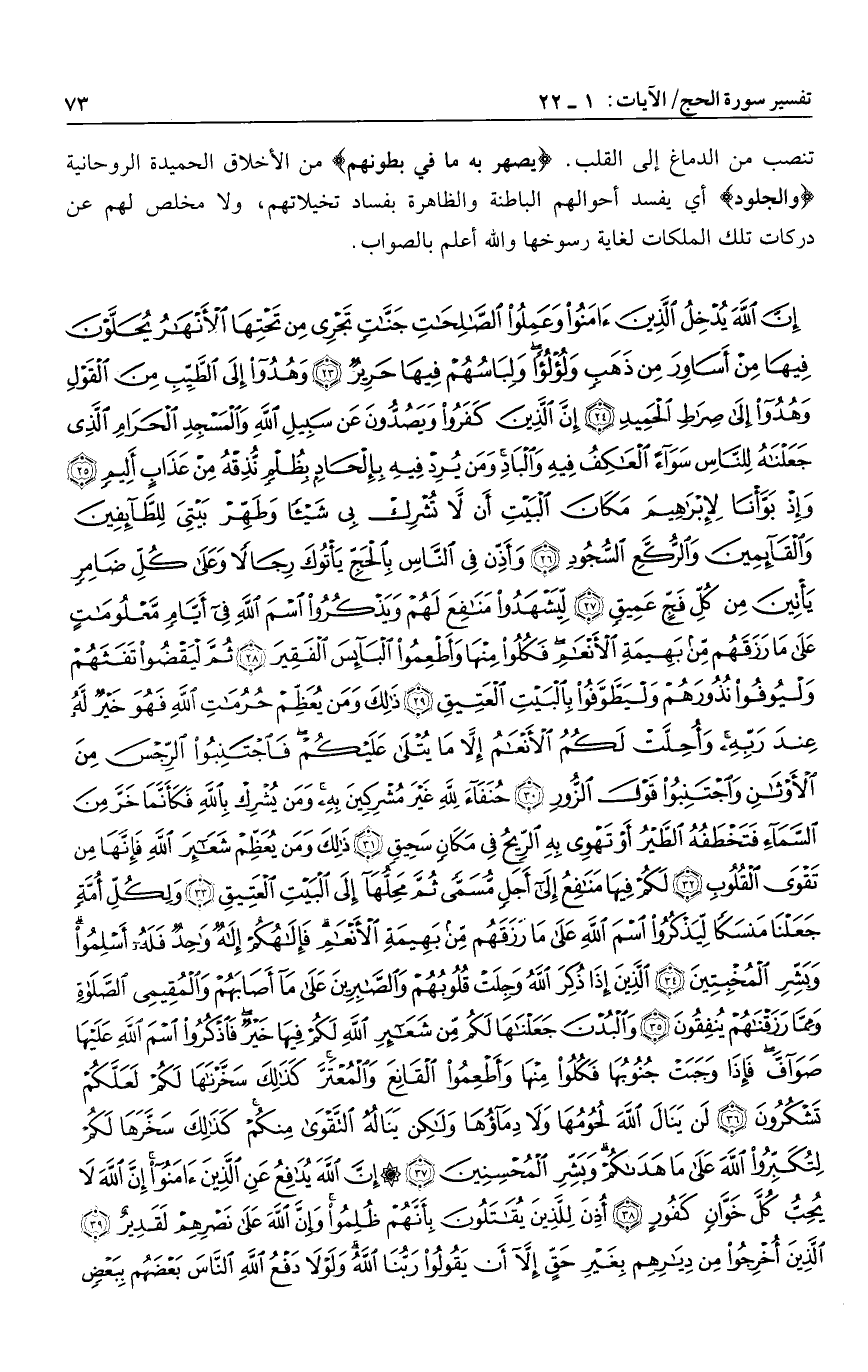 تفسير سورة الحج/ الآيات: ١ ـ ٢٢ ٧٣
تنصب من الدماغ إلى القلب. ﴿يصهر به ما في بطونهم﴾ من الأخلاق الحميدة الروحانية
﴿والجلود﴾ أي يفسد أحوالهم الباطنة والظاهرة بفساد تخيلاتهم، ولا مخلص لهم عن
دركات تلك الملكات لغاية رسوخها والله أعلم بالصواب.
إِنَّ ٱللَّهَ يُدْخِلُ ٱلَّذِينَ ءَامَنُوا۟ وَعَمِلُوا۟ ٱلصَّٰلِحَٰتِ جَنَّٰتٍ تَجْرِى مِن تَحْتِهَا ٱلْأَنْهَٰرُ يُحَلَّوْنَ
فِيهَا مِنْ أَسَاوِرَ مِن ذَهَبٍ وَلُؤْلُؤًا ۖ وَلِبَاسُهُمْ فِيهَا حَرِيرٌ ٢٣ وَهُدُوٓا۟ إِلَى ٱلطَّيِّبِ مِنَ ٱلْقَوْلِ
وَهُدُوٓا۟ إِلَىٰ صِرَٰطِ ٱلْحَمِيدِ ٢٤ إِنَّ ٱلَّذِينَ كَفَرُوا۟ وَيَصُدُّونَ عَن سَبِيلِ ٱللَّهِ وَٱلْمَسْجِدِ ٱلْحَرَامِ ٱلَّذِى
جَعَلْنَٰهُ لِلنَّاسِ سَوَآءً ٱلْعَٰكِفُ فِيهِ وَٱلْبَادِ ۚ وَمَن يُرِدْ فِيهِ بِإِلْحَادٍۭ بِظُلْمٍ نُّذِقْهُ مِنْ عَذَابٍ أَلِيمٍ ٢٥
وَإِذْ بَوَّأْنَا لِإِبْرَٰهِيمَ مَكَانَ ٱلْبَيْتِ أَن لَّا تُشْرِكْ بِى شَيْـًٔا وَطَهِّرْ بَيْتِىَ لِلطَّآئِفِينَ
وَٱلْقَآئِمِينَ وَٱلرُّكَّعِ ٱلسُّجُودِ ٢٦ وَأَذِّن فِى ٱلنَّاسِ بِٱلْحَجِّ يَأْتُوكَ رِجَالًا وَعَلَىٰ كُلِّ ضَامِرٍ
يَأْتِينَ مِن كُلِّ فَجٍّ عَمِيقٍ ٢٧ لِّيَشْهَدُوا۟ مَنَٰفِعَ لَهُمْ وَيَذْكُرُوا۟ ٱسْمَ ٱللَّهِ فِىٓ أَيَّامٍ مَّعْلُومَٰتٍ
عَلَىٰ مَا رَزَقَهُم مِّنۢ بَهِيمَةِ ٱلْأَنْعَٰمِ ۖ فَكُلُوا۟ مِنْهَا وَأَطْعِمُوا۟ ٱلْبَآئِسَ ٱلْفَقِيرَ ٢٨ ثُمَّ لْيَقْضُوا۟ تَفَثَهُمْ
وَلْيُوفُوا۟ نُذُورَهُمْ وَلْيَطَّوَّفُوا۟ بِٱلْبَيْتِ ٱلْعَتِيقِ ٢٩ ذَٰلِكَ وَمَن يُعَظِّمْ حُرُمَٰتِ ٱللَّهِ فَهُوَ خَيْرٌ لَّهُۥ
عِندَ رَبِّهِۦ ۗ وَأُحِلَّتْ لَكُمُ ٱلْأَنْعَٰمُ إِلَّا مَا يُتْلَىٰ عَلَيْكُمْ ۖ فَٱجْتَنِبُوا۟ ٱلرِّجْسَ مِنَ
ٱلْأَوْثَٰنِ وَٱجْتَنِبُوا۟ قَوْلَ ٱلزُّورِ ٣٠ حُنَفَآءَ لِلَّهِ غَيْرَ مُشْرِكِينَ بِهِۦ ۚ وَمَن يُشْرِكْ بِٱللَّهِ فَكَأَنَّمَا خَرَّ مِنَ
ٱلسَّمَآءِ فَتَخْطَفُهُ ٱلطَّيْرُ أَوْ تَهْوِى بِهِ ٱلرِّيحُ فِى مَكَانٍ سَحِيقٍ ٣١ ذَٰلِكَ وَمَن يُعَظِّمْ شَعَٰٓئِرَ ٱللَّهِ فَإِنَّهَا مِن
تَقْوَى ٱلْقُلُوبِ ٣٢ لَكُمْ فِيهَا مَنَٰفِعُ إِلَىٰٓ أَجَلٍ مُّسَمًّى ثُمَّ مَحِلُّهَآ إِلَى ٱلْبَيْتِ ٱلْعَتِيقِ ٣٣ وَلِكُلِّ أُمَّةٍ
جَعَلْنَا مَنسَكًا لِّيَذْكُرُوا۟ ٱسْمَ ٱللَّهِ عَلَىٰ مَا رَزَقَهُم مِّنۢ بَهِيمَةِ ٱلْأَنْعَٰمِ ۗ فَإِلَٰهُكُمْ إِلَٰهٌ وَٰحِدٌ فَلَهُۥٓ أَسْلِمُوا۟ ۗ
وَبَشِّرِ ٱلْمُخْبِتِينَ ٣٤ ٱلَّذِينَ إِذَا ذُكِرَ ٱللَّهُ وَجِلَتْ قُلُوبُهُمْ وَٱلصَّٰبِرِينَ عَلَىٰ مَآ أَصَابَهُمْ وَٱلْمُقِيمِى ٱلصَّلَوٰةِ
وَمِمَّا رَزَقْنَٰهُمْ يُنفِقُونَ ٣٥ وَٱلْبُدْنَ جَعَلْنَٰهَا لَكُم مِّن شَعَٰٓئِرِ ٱللَّهِ لَكُمْ فِيهَا خَيْرٌ ۖ فَٱذْكُرُوا۟ ٱسْمَ ٱللَّهِ عَلَيْهَا
صَوَآفَّ ۖ فَإِذَا وَجَبَتْ جُنُوبُهَا فَكُلُوا۟ مِنْهَا وَأَطْعِمُوا۟ ٱلْقَانِعَ وَٱلْمُعْتَرَّ ۚ كَذَٰلِكَ سَخَّرْنَٰهَا لَكُمْ لَعَلَّكُمْ
تَشْكُرُونَ ٣٦ لَن يَنَالَ ٱللَّهَ لُحُومُهَا وَلَا دِمَآؤُهَا وَلَٰكِن يَنَالُهُ ٱلتَّقْوَىٰ مِنكُمْ ۚ كَذَٰلِكَ سَخَّرَهَا لَكُمْ
لِتُكَبِّرُوا۟ ٱللَّهَ عَلَىٰ مَا هَدَىٰكُمْ ۗ وَبَشِّرِ ٱلْمُحْسِنِينَ ٣٧ ۞ إِنَّ ٱللَّهَ يُدَٰفِعُ عَنِ ٱلَّذِينَ ءَامَنُوٓا۟ ۗ إِنَّ ٱللَّهَ لَا
يُحِبُّ كُلَّ خَوَّانٍ كَفُورٍ ٣٨ أُذِنَ لِلَّذِينَ يُقَٰتَلُونَ بِأَنَّهُمْ ظُلِمُوا۟ ۚ وَإِنَّ ٱللَّهَ عَلَىٰ نَصْرِهِمْ لَقَدِيرٌ ٣٩
ٱلَّذِينَ أُخْرِجُوا۟ مِن دِيَٰرِهِم بِغَيْرِ حَقٍّ إِلَّآ أَن يَقُولُوا۟ رَبُّنَا ٱللَّهُ ۗ وَلَوْلَا دَفْعُ ٱللَّهِ ٱلنَّاسَ بَعْضَهُم بِبَعْضٍ